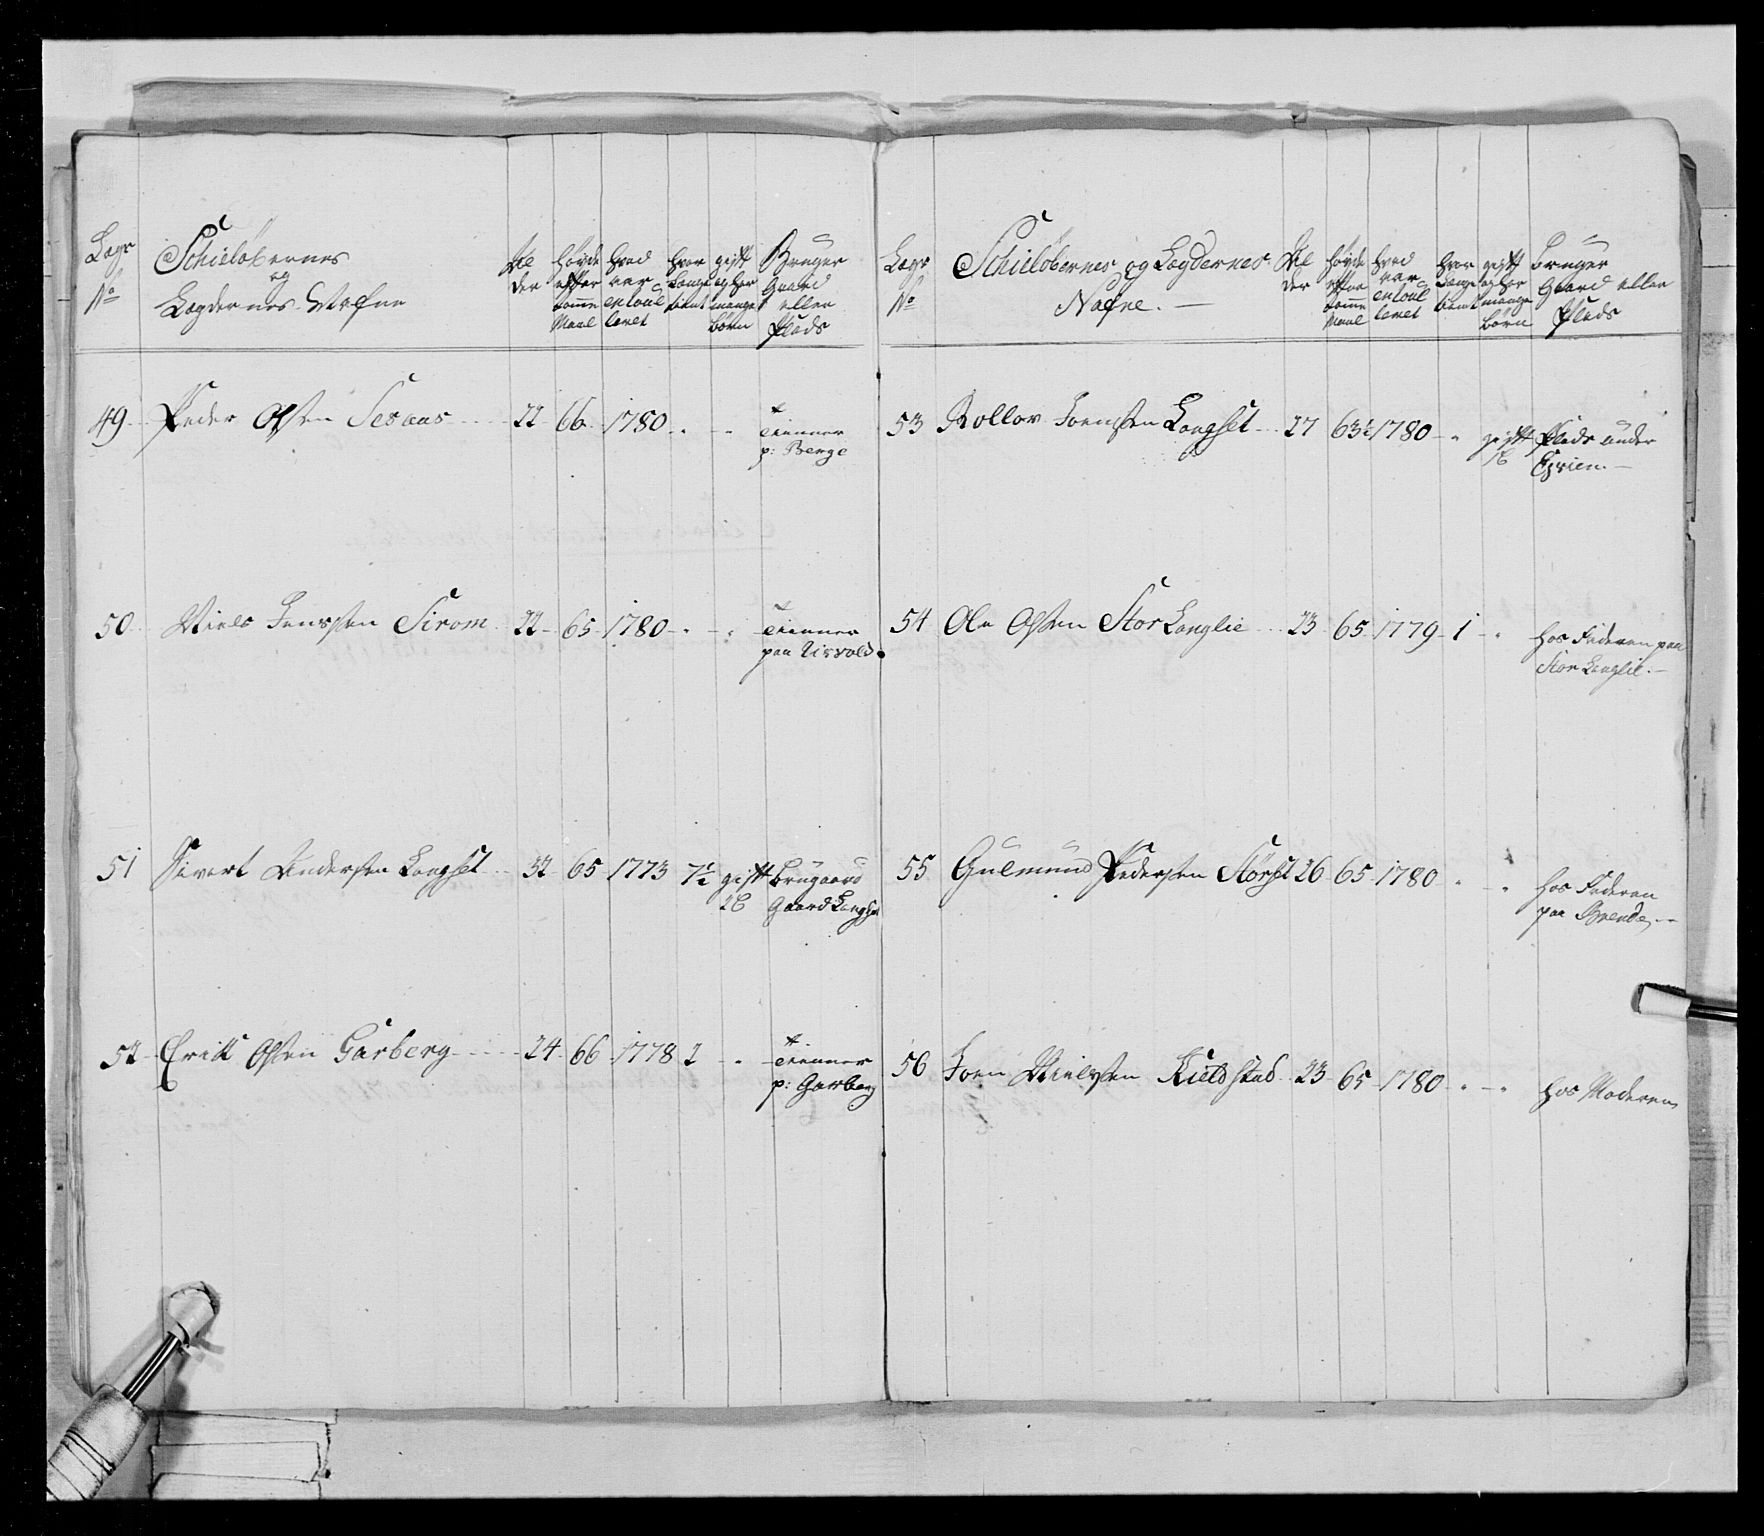 Lægs
No
Schielöbernes
og
Lægdernes Nafne
Al
der
Høyde
efter
tomme
Maal
hvad
aar
enroul
leret
hvor
Længe
tient
gift
og har
mange
börn
Bruger
Gaard
eller
Plads
49 Peder Olsen Sesaas 22 66 1780 " "
Tienner
p: Berge
50 Niels Jenssen Sirom 22 65 1780 " "
Tienner
paa Usvold
51 Sivert Andersen Langset 32 65 1773 7½ gift Brugaard
2 B Gaard Langset
52 Erick Olsen Garberg 24 66 1778 2 "
Tienner
p: Garberg
Lægs
No
Schielöbernes og Lægdernes
Nafne.
Al
der
Høyde
efter
tomme
Maal
hvad
aar
enroul
leret
hvor
Længe
tient
gift
og har
mange
börn
Bruger
Gaard eller
Plads
53 Rollov Joensen Langset 27 63½ 1780 " gift Plads under
1 B
54 Ole Olsen Stor Langlie 23 65 1779 1 "
hos Faderen paa
Stor Langlie.
55 Gulmund Pedersen Störset 26 65 1780 " "
hos Faderen
paa Brende
56 Joen Nielsen Kieldstad 23 65 1780 " "
hos Moderen